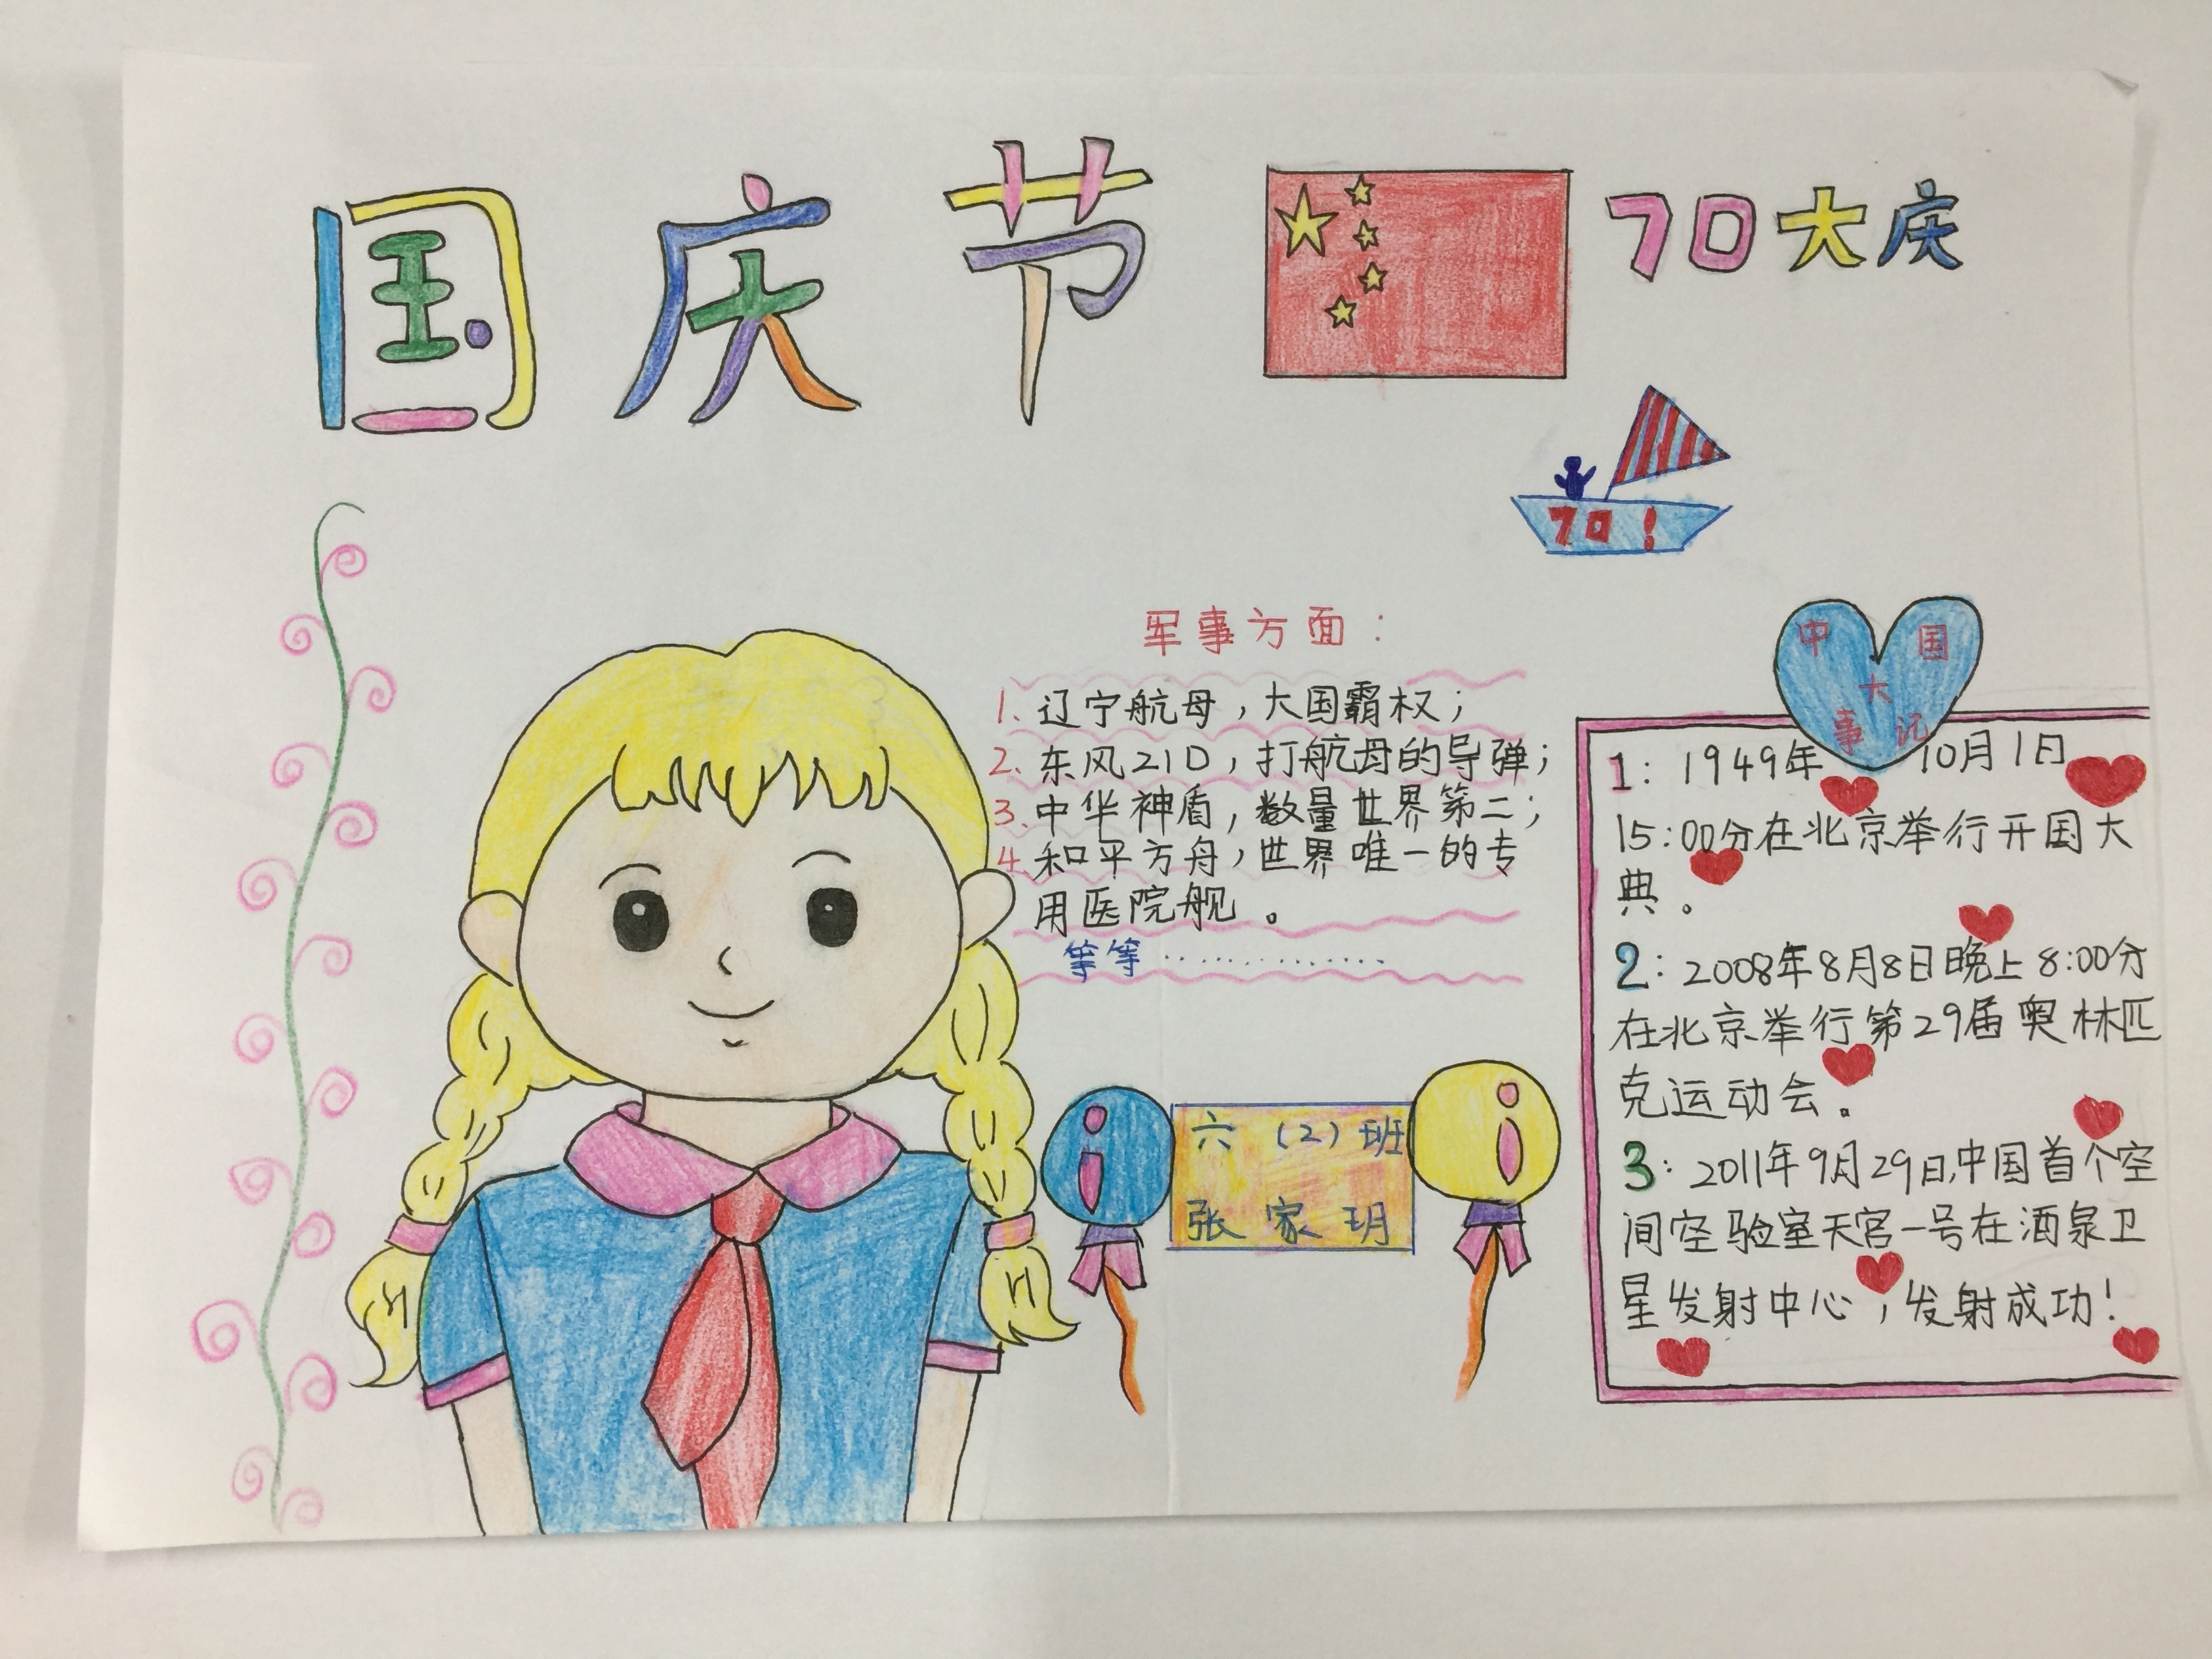 国庆节
70大庆
70!
军事方面：
1. 辽宁航母，大国霸权；
2. 东风21D，打航母的导弹；
3. 中华神盾，数量世界第二；
4. 和平方舟，世界唯一的专
用医院舰。
等等··············
六（2）班
张家玥
中国
大
事记
1：1949年10月1日
15:00分在北京举行开国大
典。
2：2008年8月8日晚上8:00分
在北京举行第29届奥林匹
克运动会。
3：2011年9月29日，中国首个空
间空验室天宫一号在酒泉卫
星发射中心，发射成功！